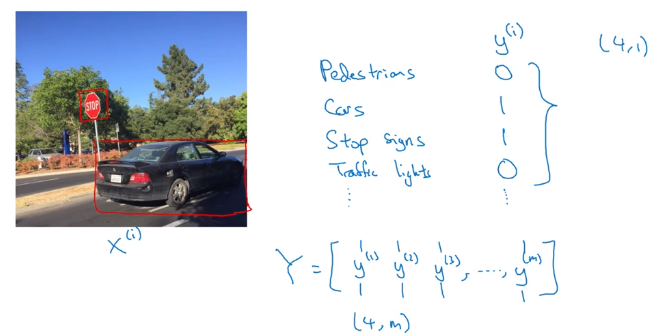 STOP
x^(i)
y^(i) (4,1)
Pedestrians 0
Cars 1
Stop signs 1
Traffic lights 0
⋮ ⋮
Y = [ y^(1) y^(2) y^(3), ....., y^(m) ]
(4, m)